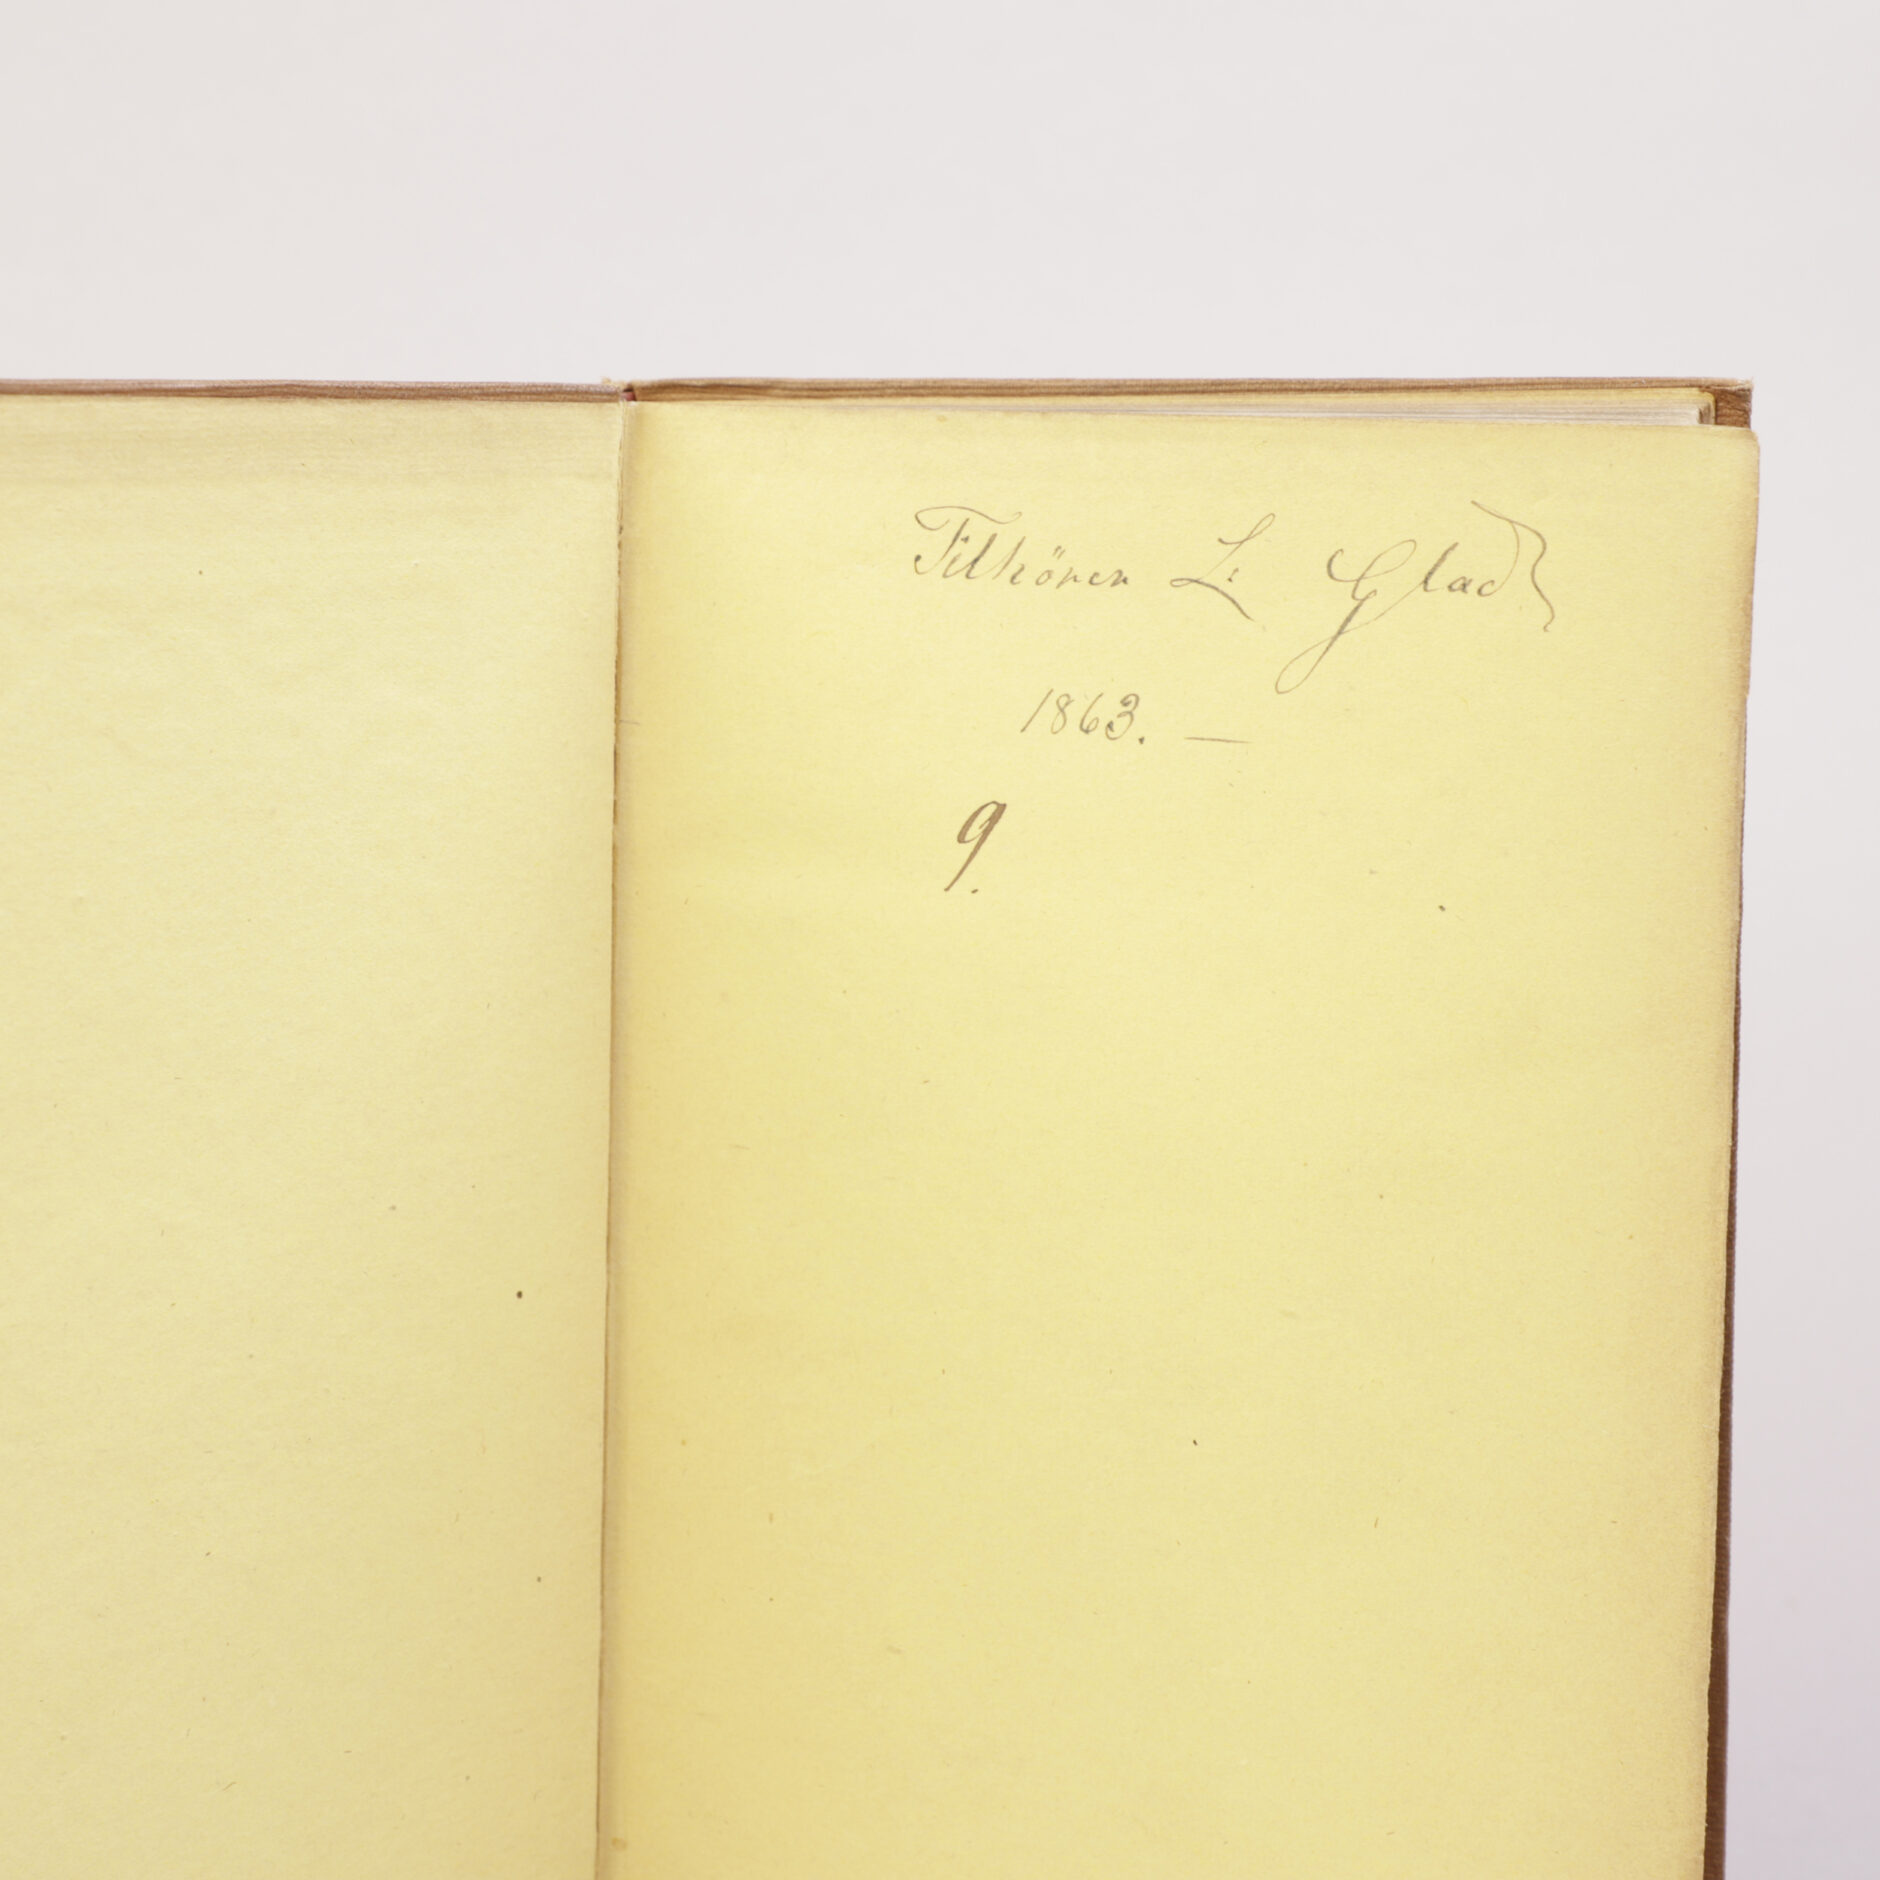 Tilhörer L: Glad
1863. —
9.